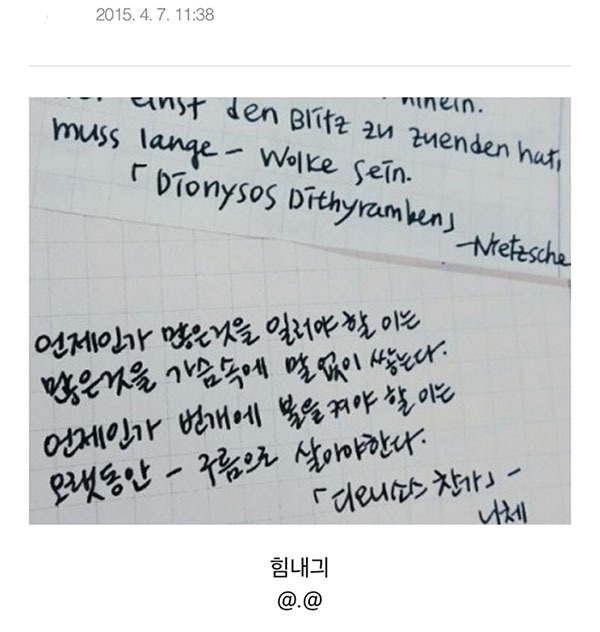 2015. 4. 7. 11:38
einst den Blitz zu zuenden hat,
hinein.
muss lange – Wolke sein.
「Dionysos Dithyramben」
–Nietzsche
언제인가 많은것을 일러야 할 이는
많은것을 가슴속에 말없이 쌓는다.
언제인가 번개에 불을켜야 할 이는
오랫동안 – 구름으로 살아야한다.
「디오니소스 찬가」 –
니체
힘내긔
@.@